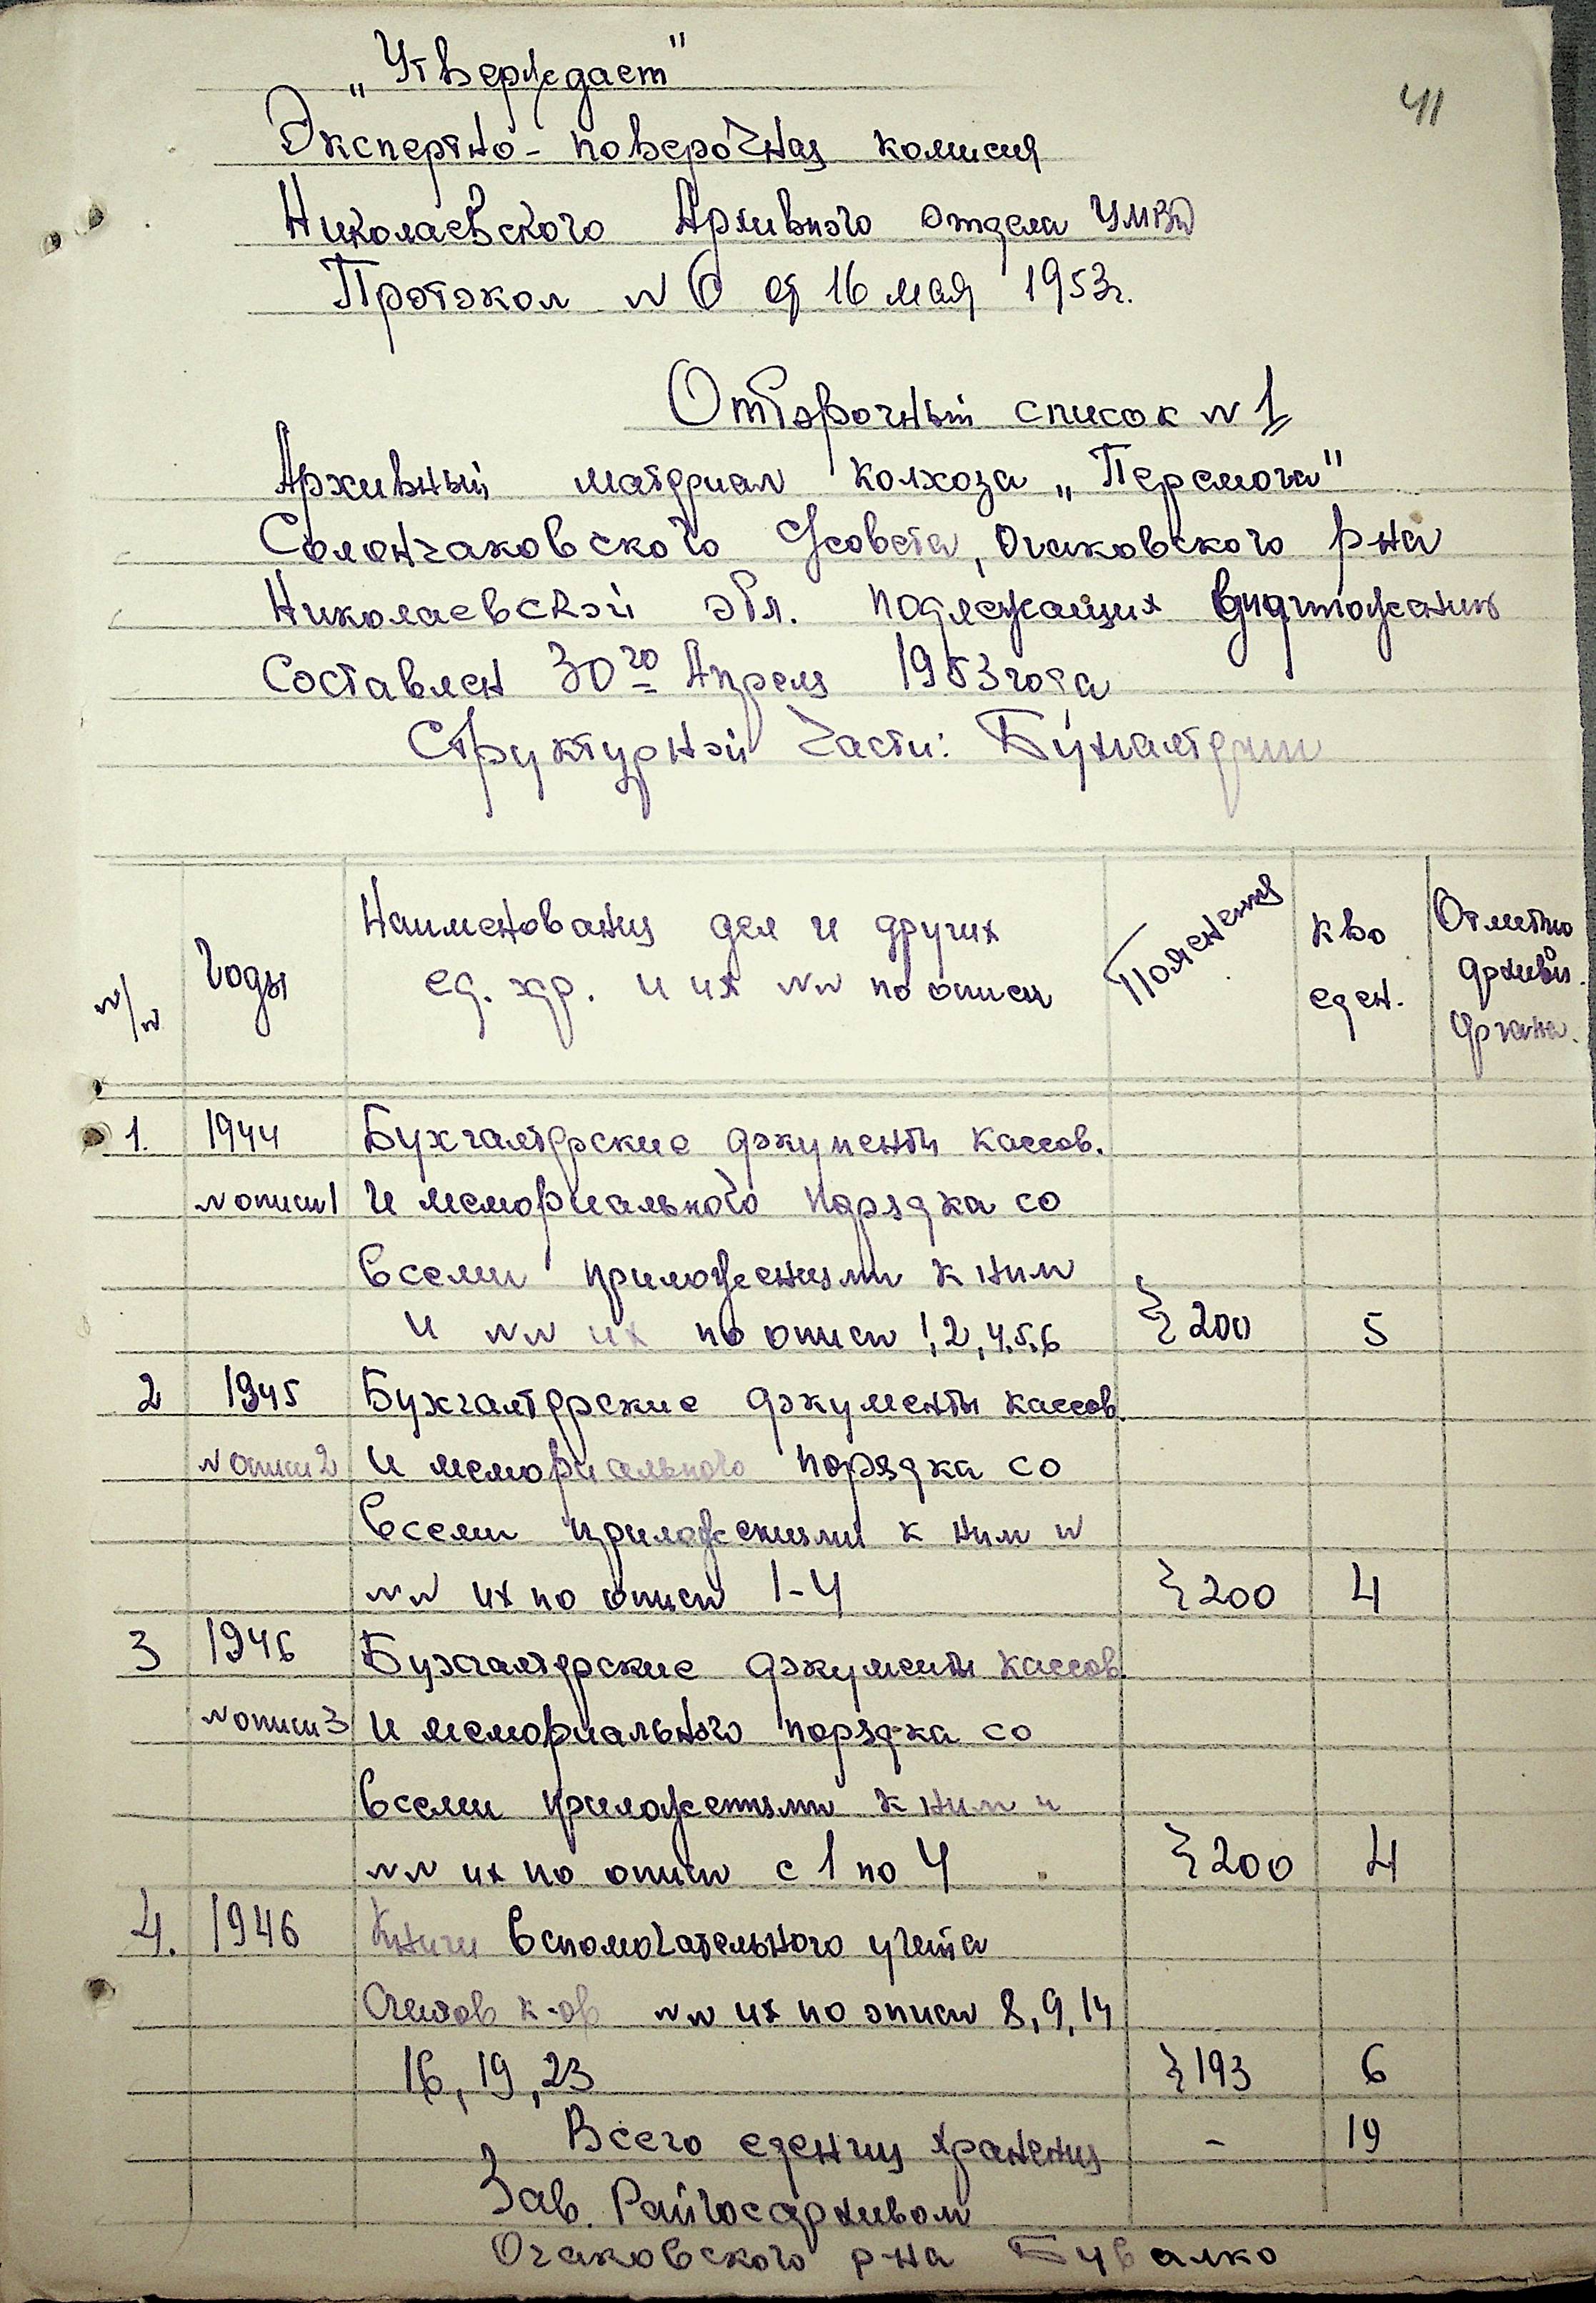 41
„Утверждает"
Экспертно-поверочная комисия
Николаевского Архивного отдела УМВД
Протокол N 6 от 16 мая 1953г.
Отборочный список N 1
Архивный материал колхоза „Перемога"
Солончаковского с/совета, Очаковского р-на
Николаевской обл. подлежащих уничтожению
Составлен 30го Апреля 1953 года
Структурной части: Бухгалтерии
N/N Годы Наименования дел и других ед. хр. и их NN по описи Пояснения кво еден. Отметка архивн. органа.
1. 1944 Бухгалтерские документы кассов.
N описи 1 и мемориального порядка со
всеми приложениями к ним
и NN их по описи 1,2,4,5,6 } 200 5
2 1945 Бухгалтерские документы кассов.
N описи 2 и мемориального порядка со
всеми приложениями к ним и
NN их по описи 1-4 } 200 4
3 1946 Бухгалтерские документы кассов.
N описи 3 и мемориального порядка со
всеми приложениями к ним и
NN их по описи с 1 по 4 } 200 4
4. 1946 Книги вспомогательного учета
счетов к-ов NN их по описи 8, 9, 14
16, 19, 23 } 193 6
Всего едениц хранения - 19
Зав. Райгосархивом
Очаковского р-на Бувалко